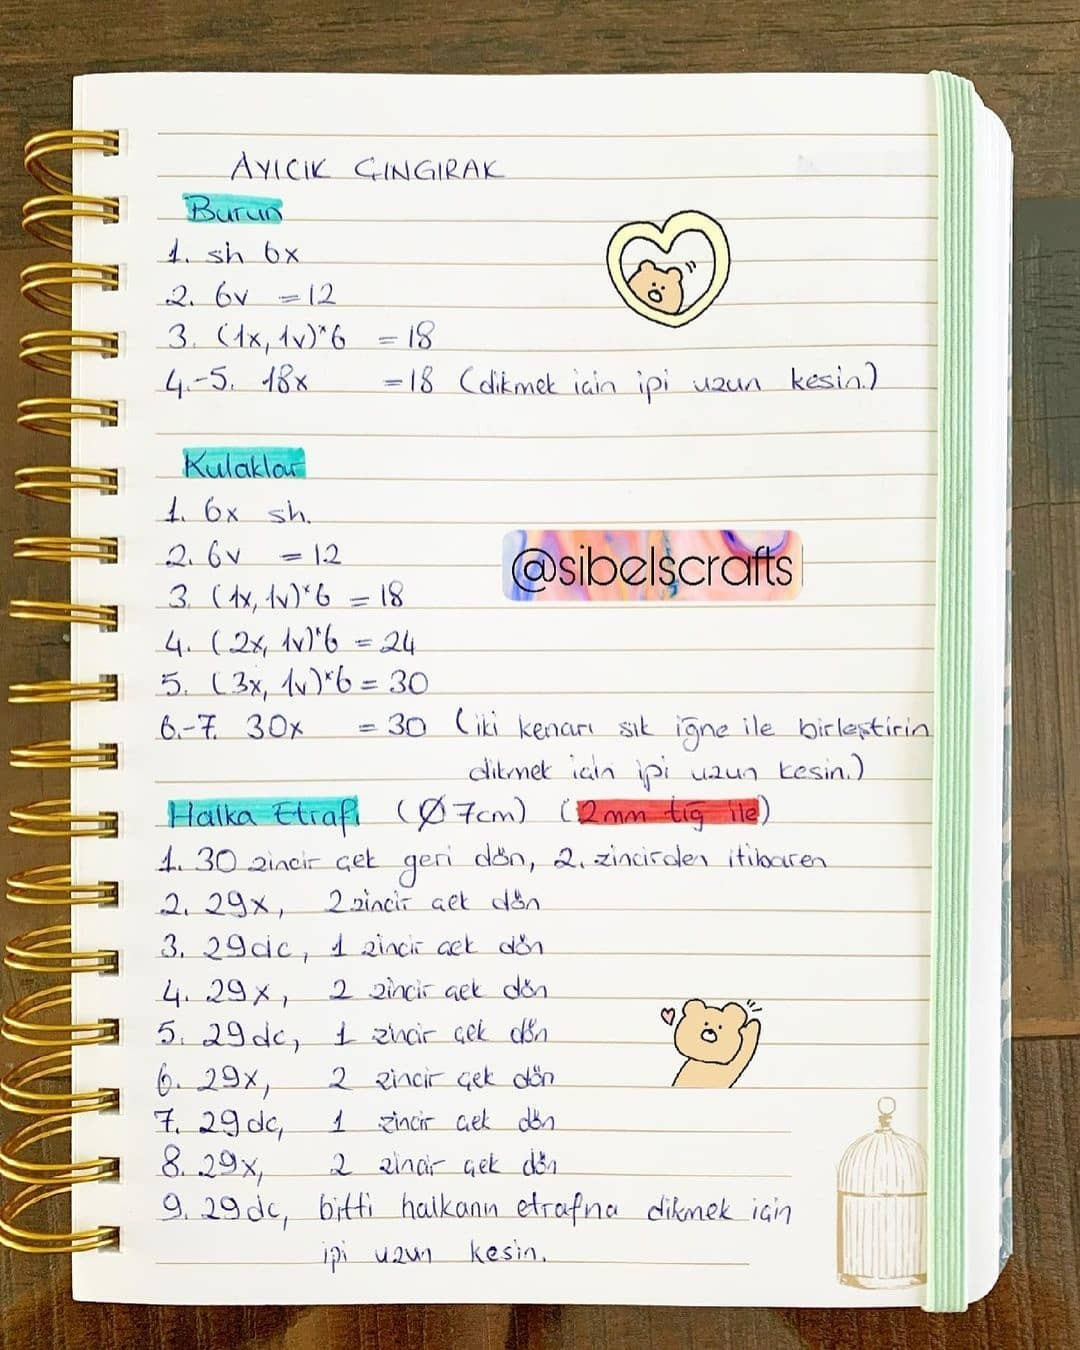 AYICIK ÇINGIRAK
Burun
1. sh 6x
2. 6v =12
3. (1x, 1v)*6 =18
4.-5. 18x =18 (dikmek için ipi uzun kesin.)
Kulaklar
1. 6x sh.
2. 6v =12
@sibelscrafts
3. (1x, 1v)*6 = 18
4. (2x, 1v)*6 = 24
5. (3x, 1v)*6 = 30
6.-7. 30x = 30 (iki kenarı sık iğne ile birleştirin
dikmek için ipi uzun kesin.)
Halka Etrafı (Ø 7cm) (2mm tığ ile)
1. 30 zincir çek geri dön, 2. zincirden itibaren
2. 29x, 2 zincir çek dön
3. 29dc, 1 zincir çek dön
4. 29x, 2 zincir çek dön
5. 29dc, 1 zincir çek dön
6. 29x, 2 zincir çek dön
7. 29dc, 1 zincir çek dön
8. 29x, 2 zincir çek dön
9. 29dc, bitti halkanın etrafına dikmek için
ipi uzun kesin.